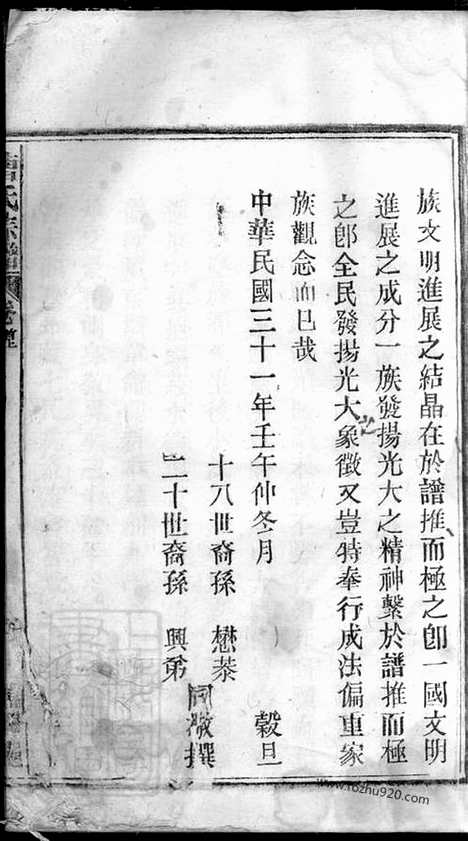 族文明進展之結晶在於譜推而極之卽一國文明
進展之成分一族發揚光大之精神繫於譜推而極
之卽全民發揚光大之象徵又豈特奉行成法偏重家
族觀念而已哉
中華民國三十一年壬午仲冬月 穀旦
十八世裔孫 懋棻
二十世裔孫 興第
同撰
氏宗譜
www.rozhu920.com